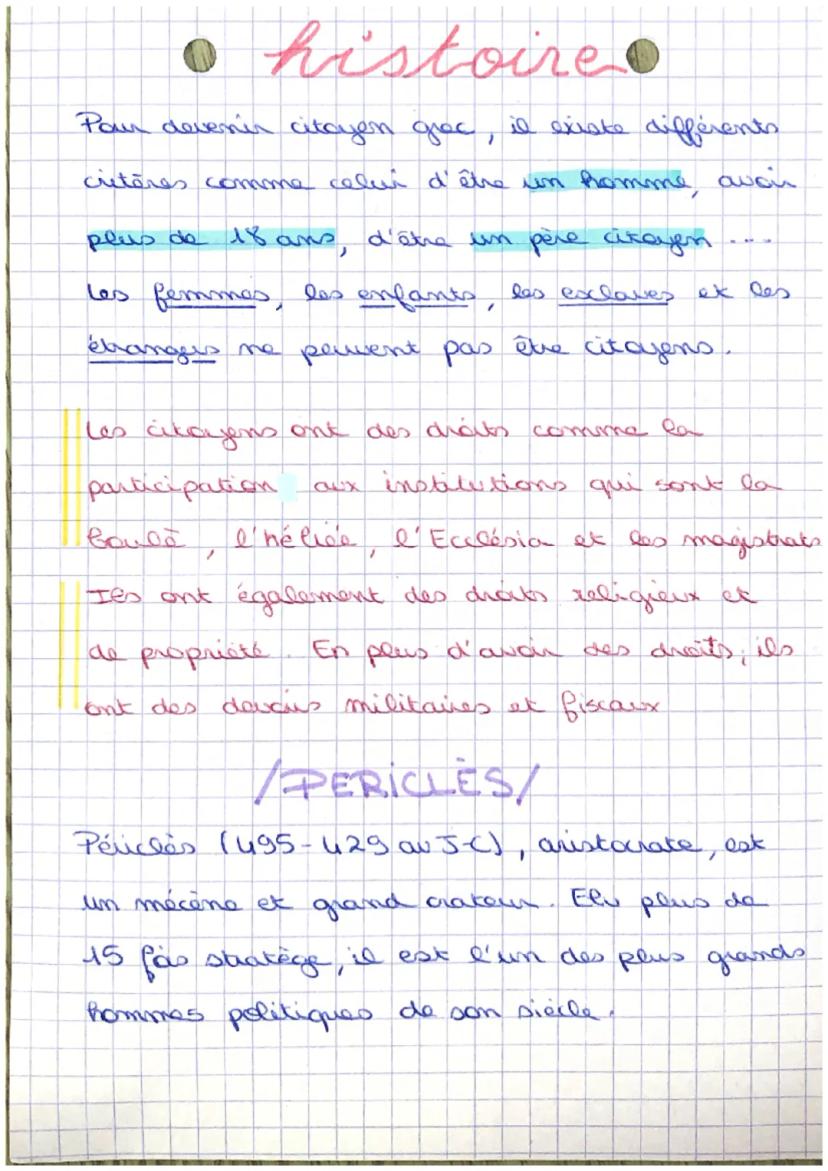 histoire
Pour devenir citoyen grec, il existe différents
critères comme celui d'être un homme, avoir
plus de 18 ans, d'être un père citoyen ....
Les femmes, les enfants, les esclaves et les
étrangers ne peuvent pas être citoyens.
Les citoyens ont des droits comme la
participation aux institutions qui sont la
Boulè, l'héliée, l'Ecclésia et les magistrats
Ils ont également des droits religieux et
de propriété. En plus d'avoir des droits, ils
ont des devoirs militaires et fiscaux
/PERICLÈS/
Périclès (495-429 av J-C), aristocrate, est
un mécène et grand orateur. Elu plus de
15 fois stratège, il est l'un des plus grands
hommes politiques de son siècle.